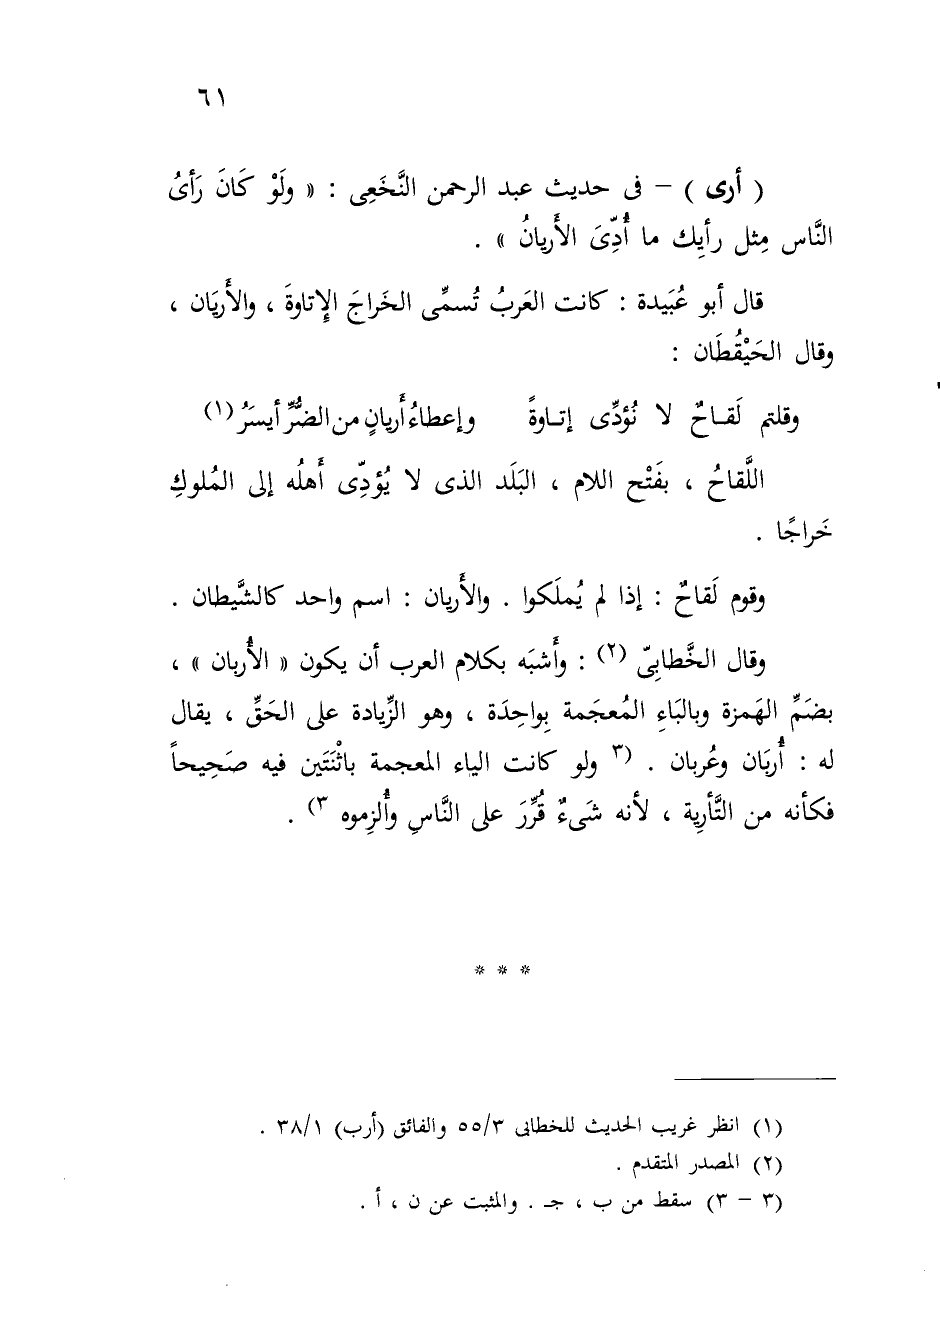 ٦١
( أرى ) – فى حديث عبد الرحمن النَّخَعِى : « ولَوْ كَانَ رَأىُ
النَّاس مِثل رأيِك ما أُدِّىَ الأَريانُ » .
قال أبو عُبَيدة : كانت العَربُ تُسمِّى الخَراجَ الإِتاوةَ ، والأَريَان ،
وقال الحَيْقُطَان :
وقلتم لَقـاحٌ لا نُؤدِّى إتـاوةً وإعطاءُ أَريانٍ من الضُّرِّ أيسَرُ (١)
اللَّقاحُ ، بفَتْح اللام ، البَلَد الذى لا يُؤدِّى أَهلُه إلى المُلوكِ
خَراجًا .
وقوم لَقاحٌ : إذا لم يُملَكوا . والأَريان : اسم واحد كالشَّيطان .
وقال الخَّطابِىّ (٢) : وأَشبَه بكلام العرب أن يكون « الأُربان » ،
بضَمِّ الهَمزة وبالبَاءِ المُعجَمة بِواحِدَة ، وهو الزِّيادة على الحَقِّ ، يقال
له : أُربَان وعُربان . (٣ ولو كانت الياء المعجمة باثْنَتَين فيه صَحِيحاً
فكأنه من التَّأرِية ، لأنه شَىءٌ قُرِّرَ على النَّاسِ وأُلزِموه ٣) .
* * *
(١) انظر غريب الحديث للخطابى ٥٥/٣ والفائق (أرب) ٣٨/١ .
(٢) المصدر المتقدم .
(٣ – ٣) سقط من ب ، جـ . والمثبت عن ن ، أ .